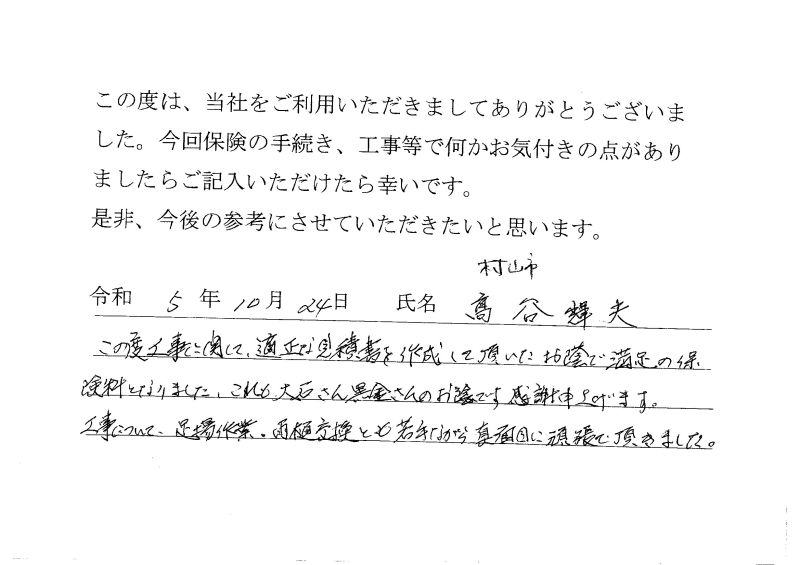 この度は、当社をご利用いただきましてありがとうございま
した。今回保険の手続き、工事等で何かお気付きの点があり
ましたらご記入いただけたら幸いです。
是非、今後の参考にさせていただきたいと思います。
村山市
令和 5 年 10 月 24日 氏名 高谷輝夫
この度工事に関して、適正な見積書を作成して頂いたお陰で満足の保
険料となりました、これも大石さん黒金さんのお陰です感謝申上げます。
工事について、足場作業、雨樋交換とも若手ながら真面目に頑張て頂きました。